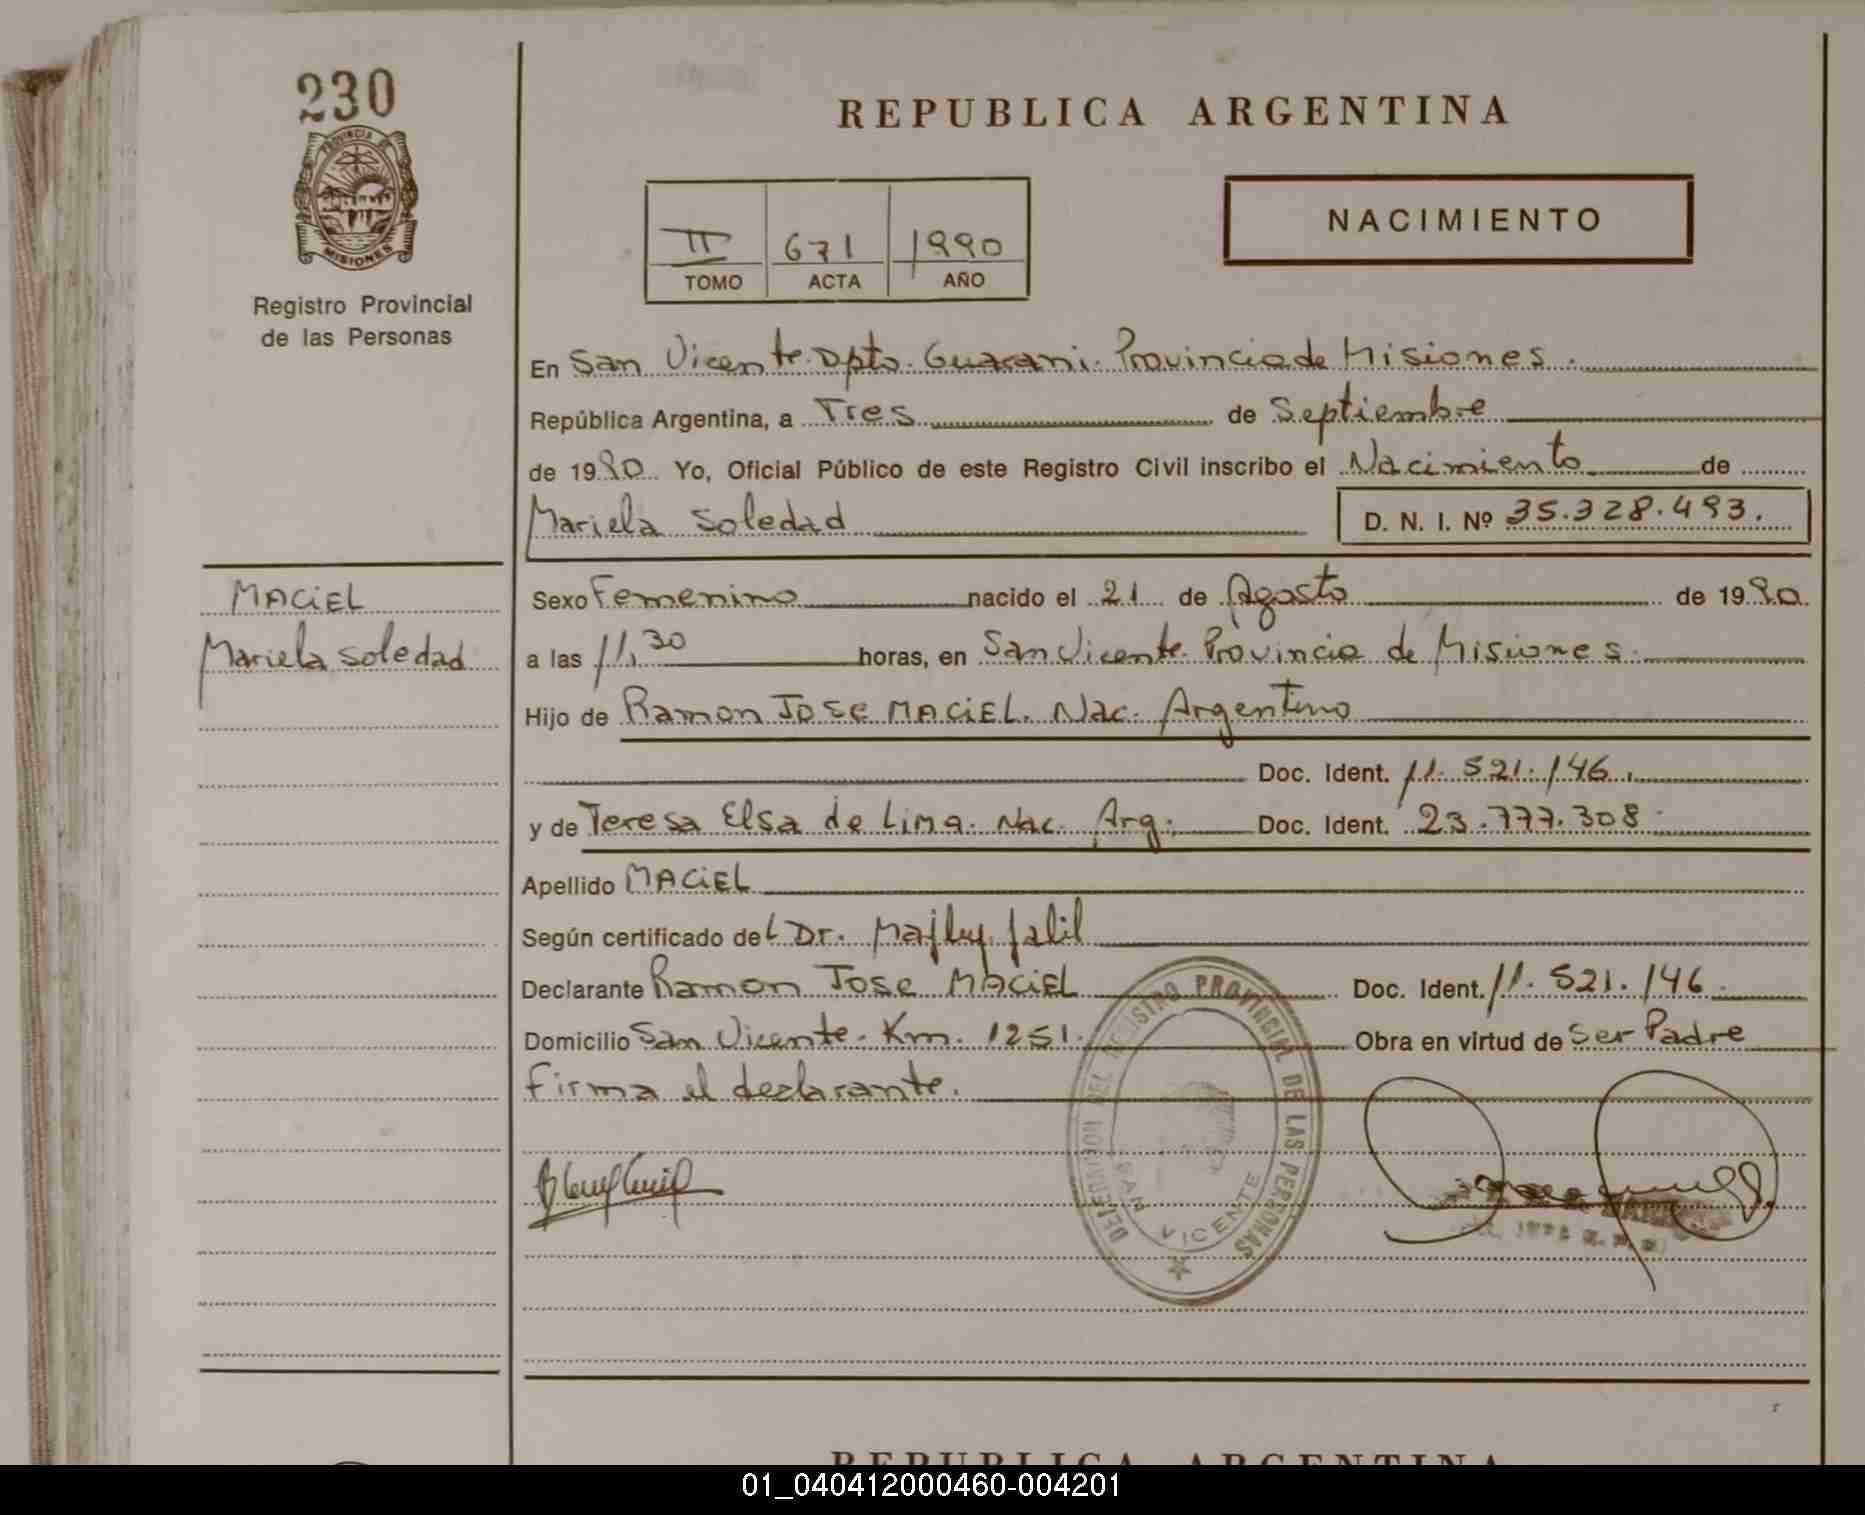 230
PROVINCIA DE
MISIONES
Registro Provincial
de las Personas
REPUBLICA ARGENTINA
II 671 1990
TOMO ACTA AÑO
NACIMIENTO
En San Vicente Dpto. Guarani. Provincia de Misiones.
República Argentina, a Tres de Septiembre
de 1990 Yo, Oficial Público de este Registro Civil inscribo el Nacimiento de
Mariela Soledad D. N. I. Nº 35.328.493.
MACIEL
Mariela Soledad
Sexo Femenino nacido el 21 de Agosto de 1990
a las 11,30 horas, en San Vicente Provincia de Misiones.
Hijo de Ramon Jose MACIEL. Nac. Argentino
Doc. Ident. 11.521.146.
y de Teresa Elsa de Lima. Nac. Arg. Doc. Ident. 23.777.308
Apellido MACIEL
Según certificado del Dr. Jalil
Declarante Ramon Jose MACIEL Doc. Ident. 11.521.146
Domicilio San Vicente. Km. 1251. Obra en virtud de Ser Padre
Firma el declarante.
DELEGACION DEL REGISTRO PROVINCIAL DE LAS PERSONAS
SAN VICENTE
REPUBLICA ARGENTINA
01_040412000460-004201